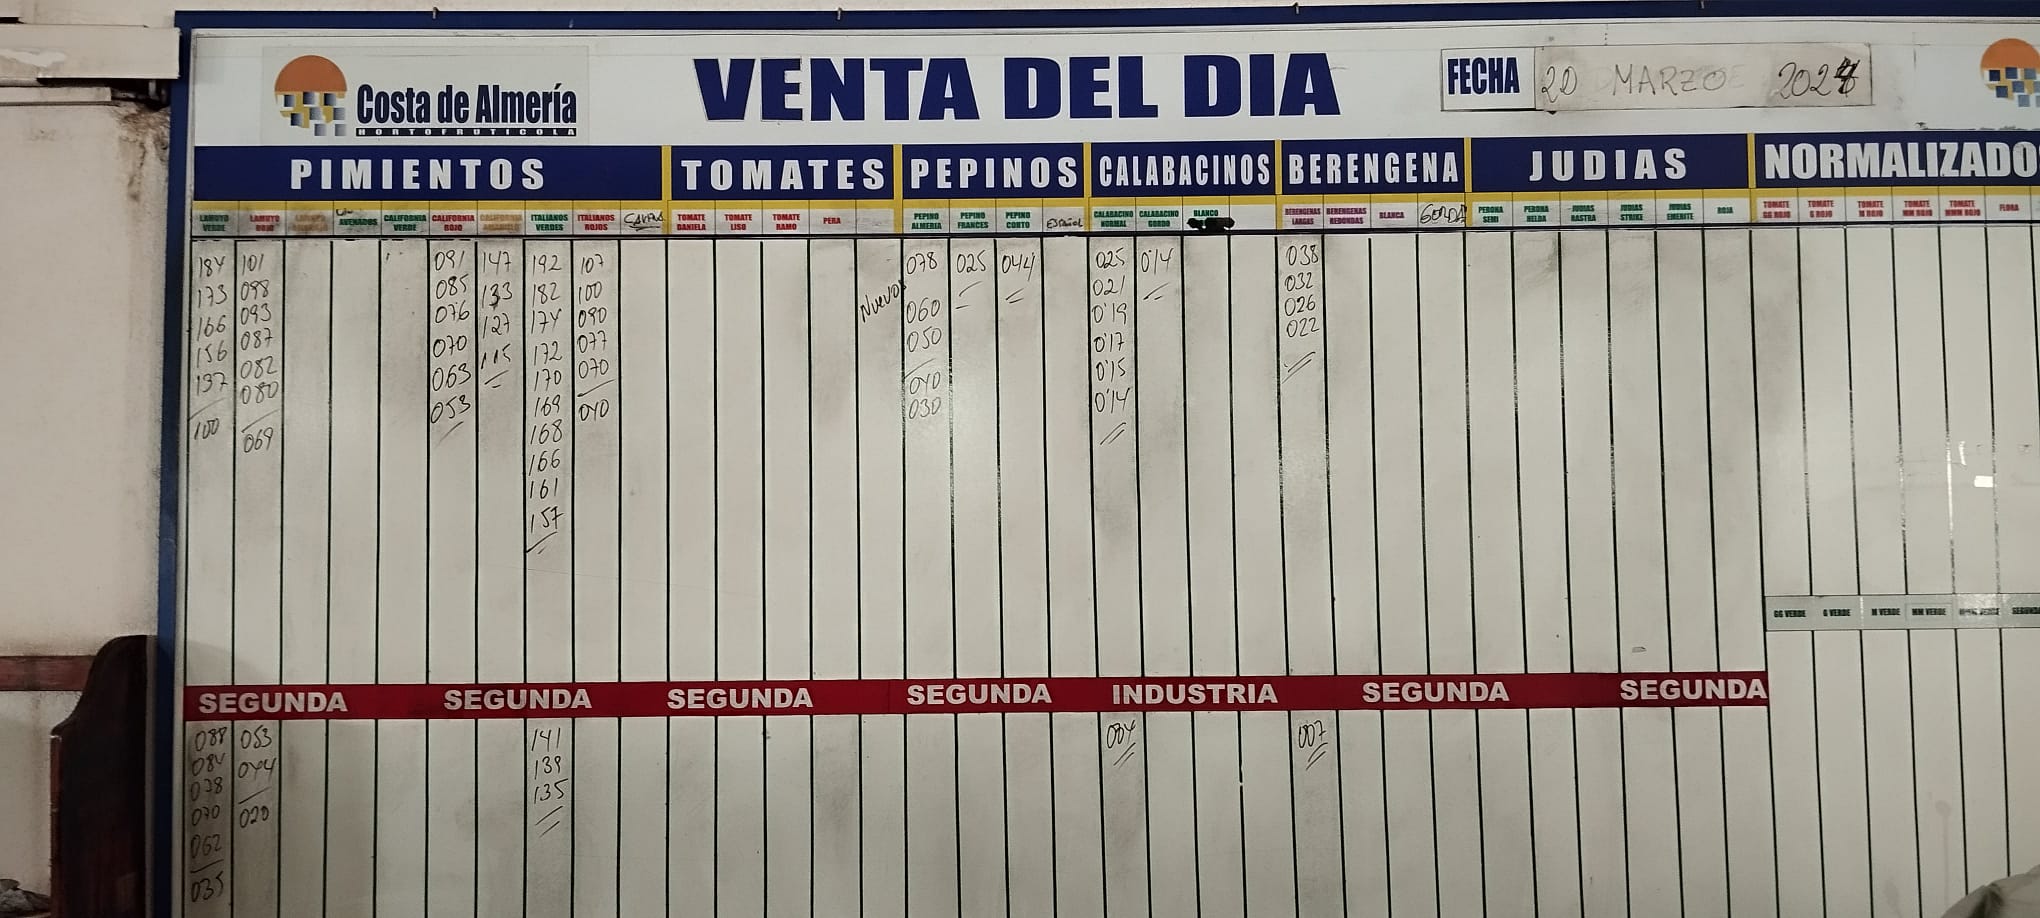 Costa de Almería
HORTOFRUTICOLA
VENTA DEL DIA
FECHA 20 MARZO 2024
PIMIENTOS TOMATES PEPINOS CALABACINOS BERENGENA JUDIAS NORMALIZADOS
LAMUYO VERDE
LAMUYO ROJO
CALIFORNIA VERDE
CALIFORNIA ROJO
CALIFORNIA AMARILLO
ITALIANOS VERDES
ITALIANOS ROJOS
TOMATE DANIELA
TOMATE LISO
TOMATE RAMO
PERA
PEPINO ALMERIA
PEPINO FRANCES
PEPINO CORTO
ESPAÑOL
CALABACINO NORMAL
CALABACINO GORDO
BLANCO
BERENGENAS LARGAS
BERENGENAS REDONDAS
BLANCA
GORDA
PERONA SEMI
PERONA HELDA
JUDIAS RASTRA
JUDIAS STRIKE
JUDIAS EMERITE
ROJA
TOMATE GG ROJO
TOMATE G ROJO
TOMATE M ROJO
TOMATE MM ROJO
TOMATE MMM ROJO
FLORA
184 101 091 147 192 107 078 025 044 025 0'14 038
173 098 085 133 182 100 Nuevos 060 021 032
166 093 076 127 174 090 050 0'19 026
156 087 070 115 172 077 040 0'17 022
137 082 063 170 070 030 0'15
100 080 053 169 040 0'14
069 168
166
161
157
GG VERDE G VERDE M VERDE MM VERDE
SEGUNDA SEGUNDA SEGUNDA SEGUNDA INDUSTRIA SEGUNDA SEGUNDA
088 053 141 004 007
084 044 139
078 020 135
070
062
035